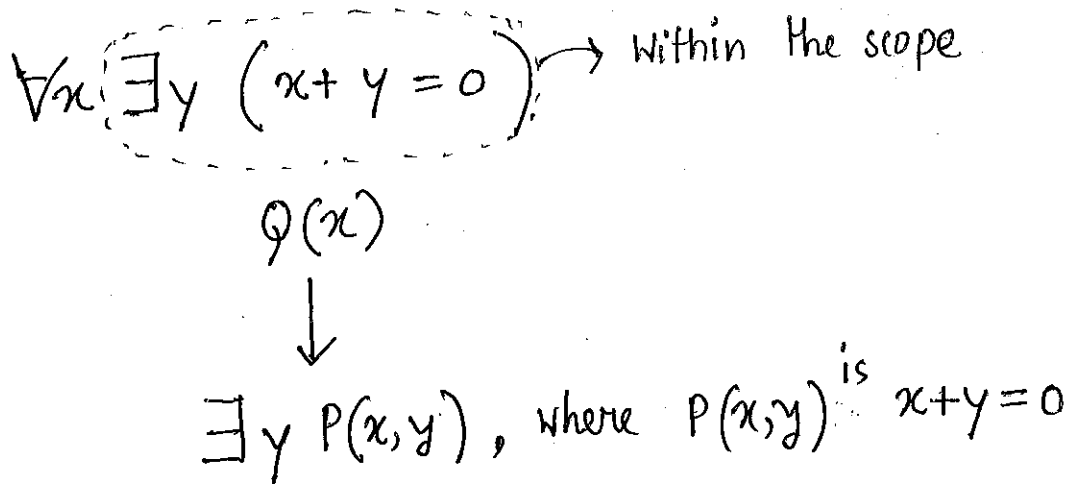 ∀x ∃y (x + y = 0) → Within the scope
Q(x)
↓
∃y P(x,y), where P(x,y) is x+y=0